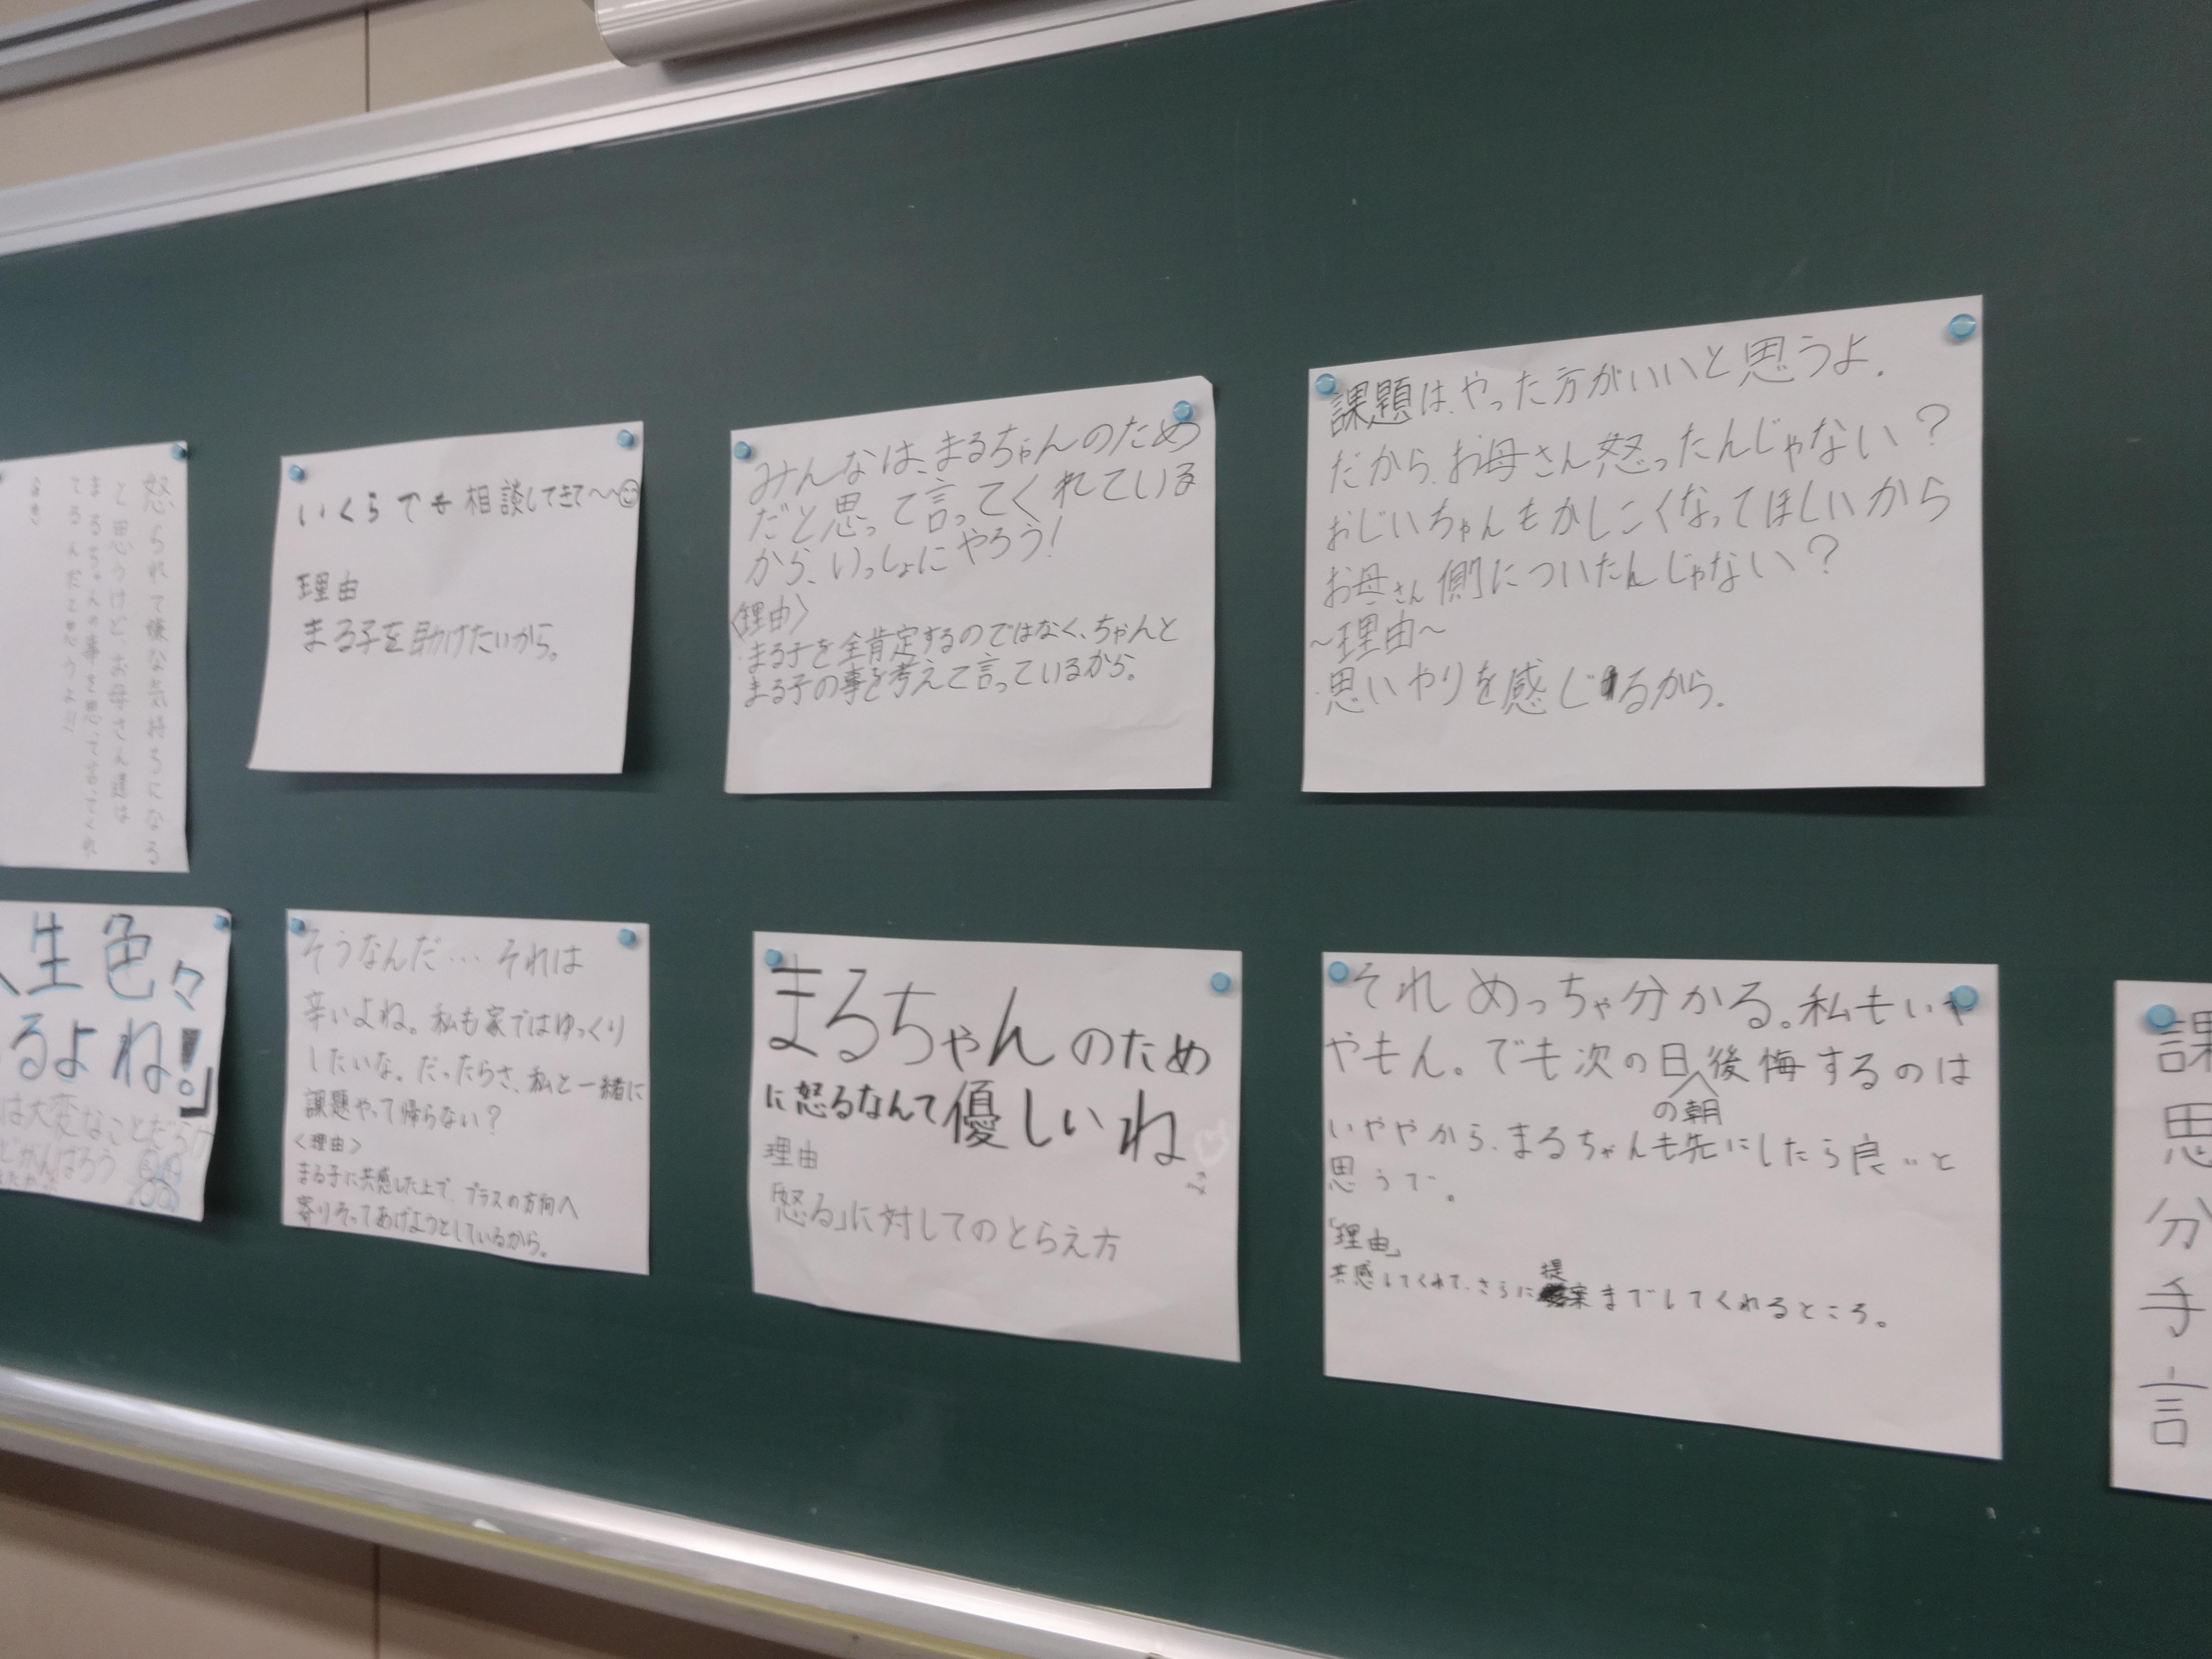 怒られて嫌な気持ちになる
と思うけど、お母さん達は
まるちゃんの事を思って言ってくれ
てるんだと思うよ!!
いくらでも相談してきて〜〜☺
理由
まる子を助けたいから。
みんなは、まるちゃんのため
だと思って言ってくれている
から、いっしょにやろう!
〈理由〉
まる子を全肯定するのではなく、ちゃんと
まる子の事を考えて言っているから。
課題は、やった方がいいと思うよ.
だから、お母さん怒ったんじゃない?
おじいちゃんもかしこくなってほしいから
お母さん側についたんじゃない?
~理由~
思いやりを感じるから.
生色々
るよね!」
は大変なことだらけ
がんばろう
そうなんだ… それは
辛いよね。私も家ではゆっくり
したいな。だったらさ、私と一緒に
課題やって帰らない?
〈理由〉
まる子に共感した上で、プラスの方向へ
寄りそってあげようとしているから。
まるちゃんのため
に怒るなんて優しいね
理由
「怒る」に対してのとらえ方
それ めっちゃ分かる。私もいや
やもん。でも次の日の朝後悔するのは
いややから、まるちゃんも先にしたら良いと
思うで。
「理由」
共感してくれて、さらに提案までしてくれるところ。
課
思
分
手
言